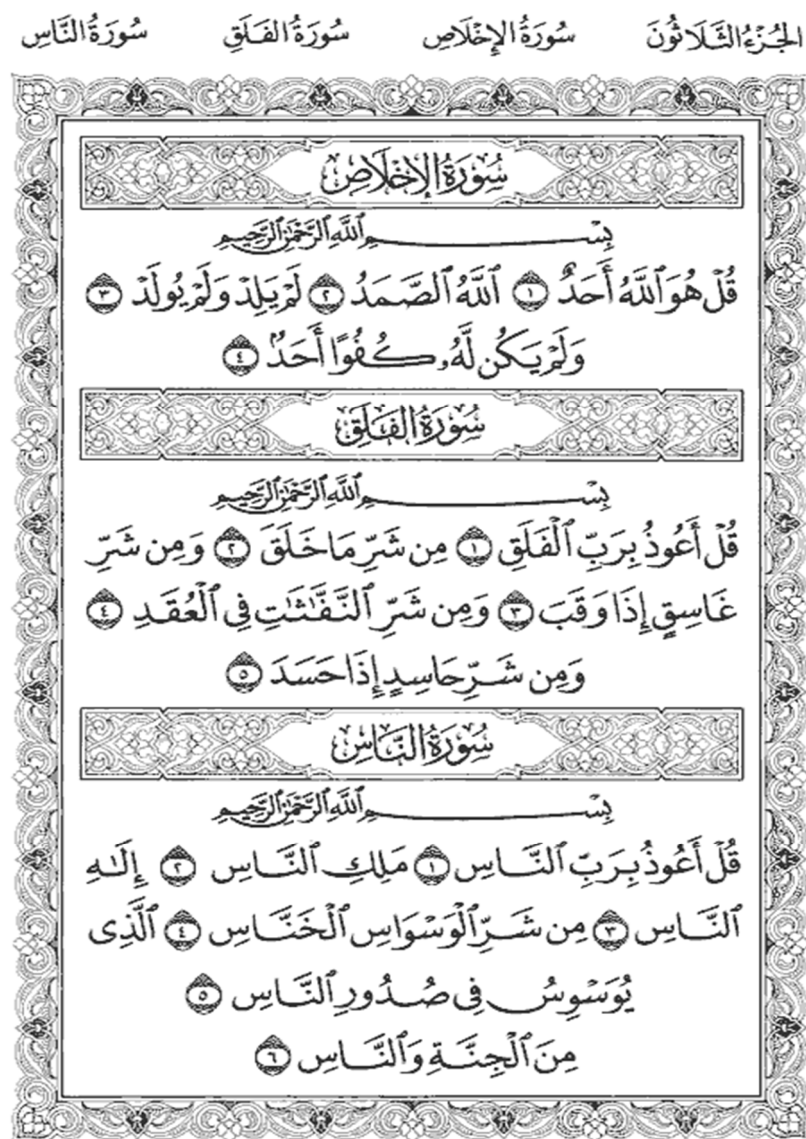 الجُزْءُ الثَّلَاثُونَ سُورَةُ الإِخْلَاصِ سُورَةُ الفَلَقِ سُورَةُ النَّاسِ
سُورَةُ الإِخْلَاصِ
بِسْمِ ٱللَّهِ ٱلرَّحْمَٰنِ ٱلرَّحِيمِ
قُلْ هُوَ ٱللَّهُ أَحَدٌ ١ ٱللَّهُ ٱلصَّمَدُ ٢ لَمْ يَلِدْ وَلَمْ يُولَدْ ٣
وَلَمْ يَكُن لَّهُۥ كُفُوًا أَحَدٌۢ ٤
سُورَةُ الفَلَقِ
بِسْمِ ٱللَّهِ ٱلرَّحْمَٰنِ ٱلرَّحِيمِ
قُلْ أَعُوذُ بِرَبِّ ٱلْفَلَقِ ١ مِن شَرِّ مَا خَلَقَ ٢ وَمِن شَرِّ
غَاسِقٍ إِذَا وَقَبَ ٣ وَمِن شَرِّ ٱلنَّفَّٰثَٰتِ فِي ٱلْعُقَدِ ٤
وَمِن شَرِّ حَاسِدٍ إِذَا حَسَدَ ٥
سُورَةُ النَّاسِ
بِسْمِ ٱللَّهِ ٱلرَّحْمَٰنِ ٱلرَّحِيمِ
قُلْ أَعُوذُ بِرَبِّ ٱلنَّاسِ ١ مَلِكِ ٱلنَّاسِ ٢ إِلَٰهِ
ٱلنَّاسِ ٣ مِن شَرِّ ٱلْوَسْوَاسِ ٱلْخَنَّاسِ ٤ ٱلَّذِى
يُوَسْوِسُ فِى صُدُورِ ٱلنَّاسِ ٥
مِنَ ٱلْجِنَّةِ وَٱلنَّاسِ ٦